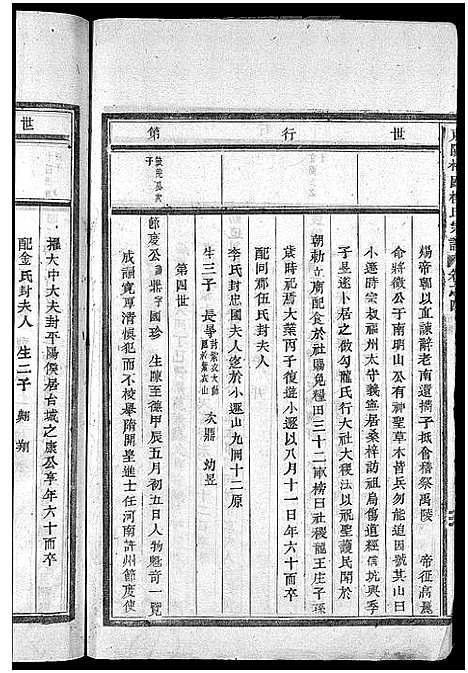 世
行
第
煬帝朝以直諫辭老南還攜子抵會稽祭禹陵 帝征高麗
命將徵公于南明山公有神聖草木皆兵勿能追因號其山曰
小遯時宗叔福州太守義寧居桑梓訪祖烏傷道經信坑與季
子遜卜居之做勾龍氏行大社大稷法以祝聖護民聞於
朝勅立廟配食於社賜免糧田三十二畝榜曰社稷龍王庄子孫
歲時祀焉大業丙子復遊小遯山以八月十一日卒六十而卒
配同郡伍氏封夫人
李氏封忠國夫人合小遯山九岡十二原
生三子 長爭 次鼎 幼昱
第四世
節度公 鼎字國珍 生陳至德甲辰五月初五日人物魁奇一覽
成誦寬厚清慎犯而不校舉隋開皇進士任河南許州節度使
世
擢大中大夫封平陽侯居台城之康公享年六十而卒
配金氏封夫人 生二子 翱 翔